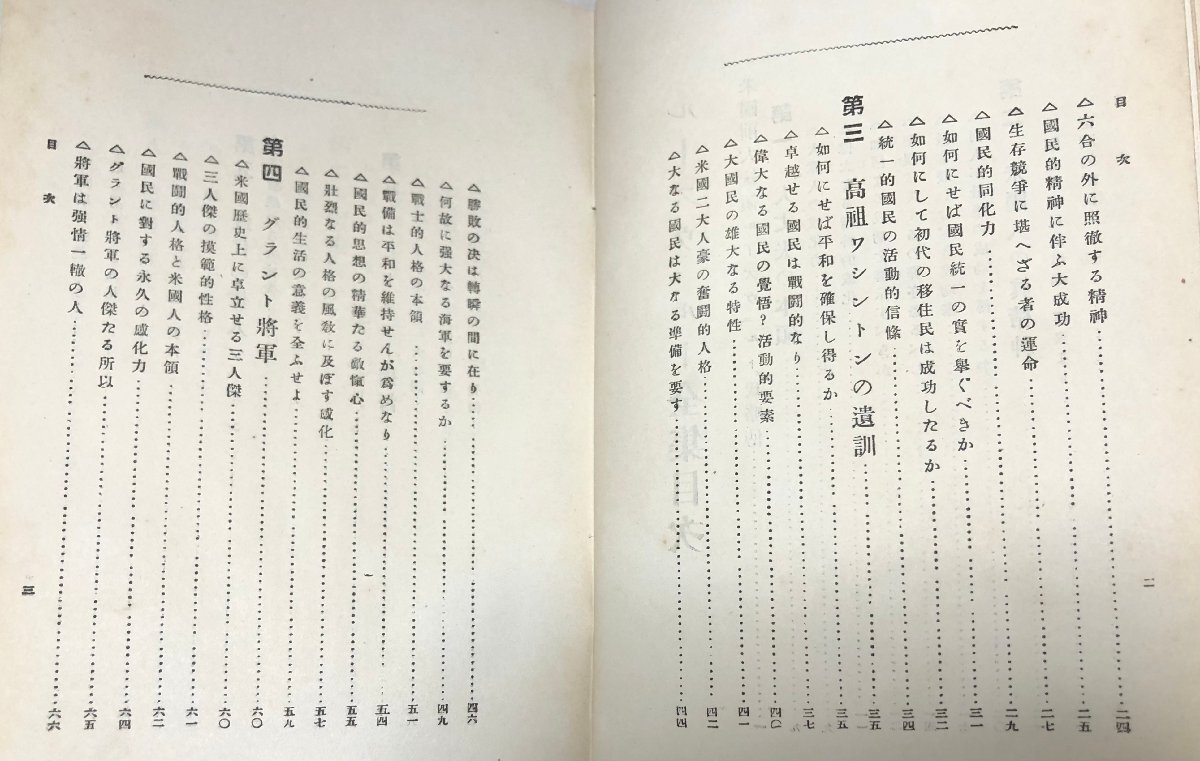 目次
△六合の外に照徹する精神……二四
△國民的精神に伴ふ大成功……二五
△生存競爭に堪へざる者の運命……二七
△國民的同化力……二九
△如何にせば國民統一の實を擧ぐべきか……三一
△如何にして初代の移住民は成功したるか……三二
△統一的國民の活動的信條……三四
第三 高祖ワシントンの遺訓……三五
△如何にせば平和を確保し得るか……三五
△卓越せる國民は戰鬪的なり……三七
△偉大なる國民の覺悟?活動的要素……四〇
△大國民の雄大なる特性……四一
△米國二大人豪の奮鬪的人格……四二
△大なる國民は大なる準備を要す……四四
二
△勝敗の決は轉瞬の間に在り……四六
△何故に强大なる海軍を要するか……四九
△戰士的人格の本領……五一
△戰備は平和を維持せんが爲めなり……五四
△國民的思想の精華たる敵愾心……五五
△壯烈なる人格の風敎に及ぼす感化……五七
△國民的生活の意義を全ふせよ……五八
第四 グラント將軍……六〇
△米國歷史上に卓立せる三人傑……六〇
△三人傑の摸範的性格……六一
△戰鬪的人格と米國人の本領……六二
△國民に對する永久の感化力……六四
△グラント將軍の人傑たる所以……六五
△將軍は强情一徹の人……六六
目次
三